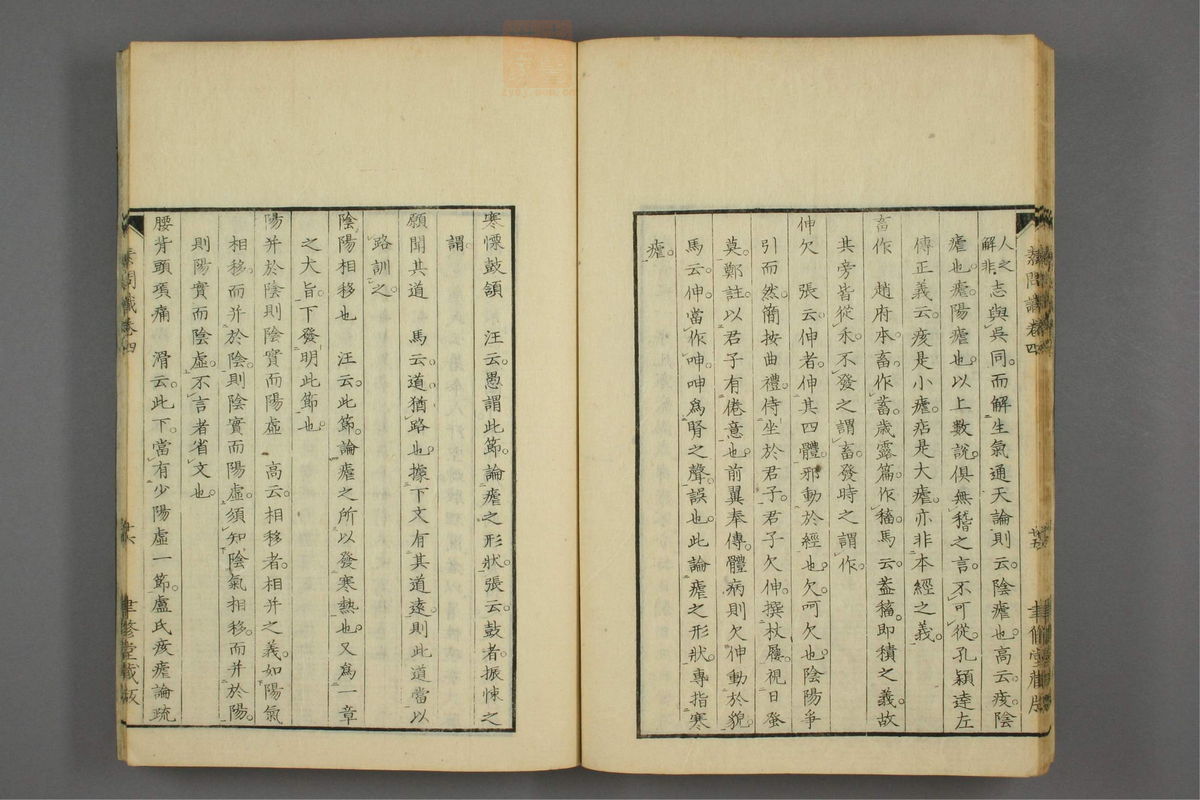 人之志與吳同而解生氣通天論則云陰瘧也高云痎陰
解非
瘧也瘧陽瘧也以上數說俱無稽之言不可從孔穎達左
傳正義云痎是小瘧痁是大瘧亦非本經之義
畜作　趙府本畜作蓄歲露篇作稸馬云蓋稸即積之義故
其旁皆從禾不發之謂畜發時之謂作
伸欠　張云伸者伸其四體邪動於經也欠呵欠也陰陽爭
引而然簡按曲禮侍坐於君子君子欠伸撰杖屨視日蚤
莫鄭註以君子有倦意也前翼奉傳體病則欠伸動於貌
馬云伸當作呻呻爲腎之聲誤也此論瘧之形狀專指寒
瘧
素問識卷四
廿五
聿修堂藏版
寒慄鼓頷　汪云愚謂此節論瘧之形狀張云鼓者振悚之
謂
願聞其道　馬云道猶路也據下文有其道遠則此道當以
路訓之
陰陽相移也　汪云此節論瘧之所以發寒熱也又爲一章
之大旨下發明此節也
陽并於陰則陰實而陽虛　高云相移者相并之義如陽氣
相移而并於陰則陰實而陽虛須知陰氣相移而并於陽
則陽實而陰虛不言者省文也
腰背頭項痛　滑云此下當有少陽虛一節盧氏痎瘧論疏
素問識卷四
廿六
聿修堂藏版